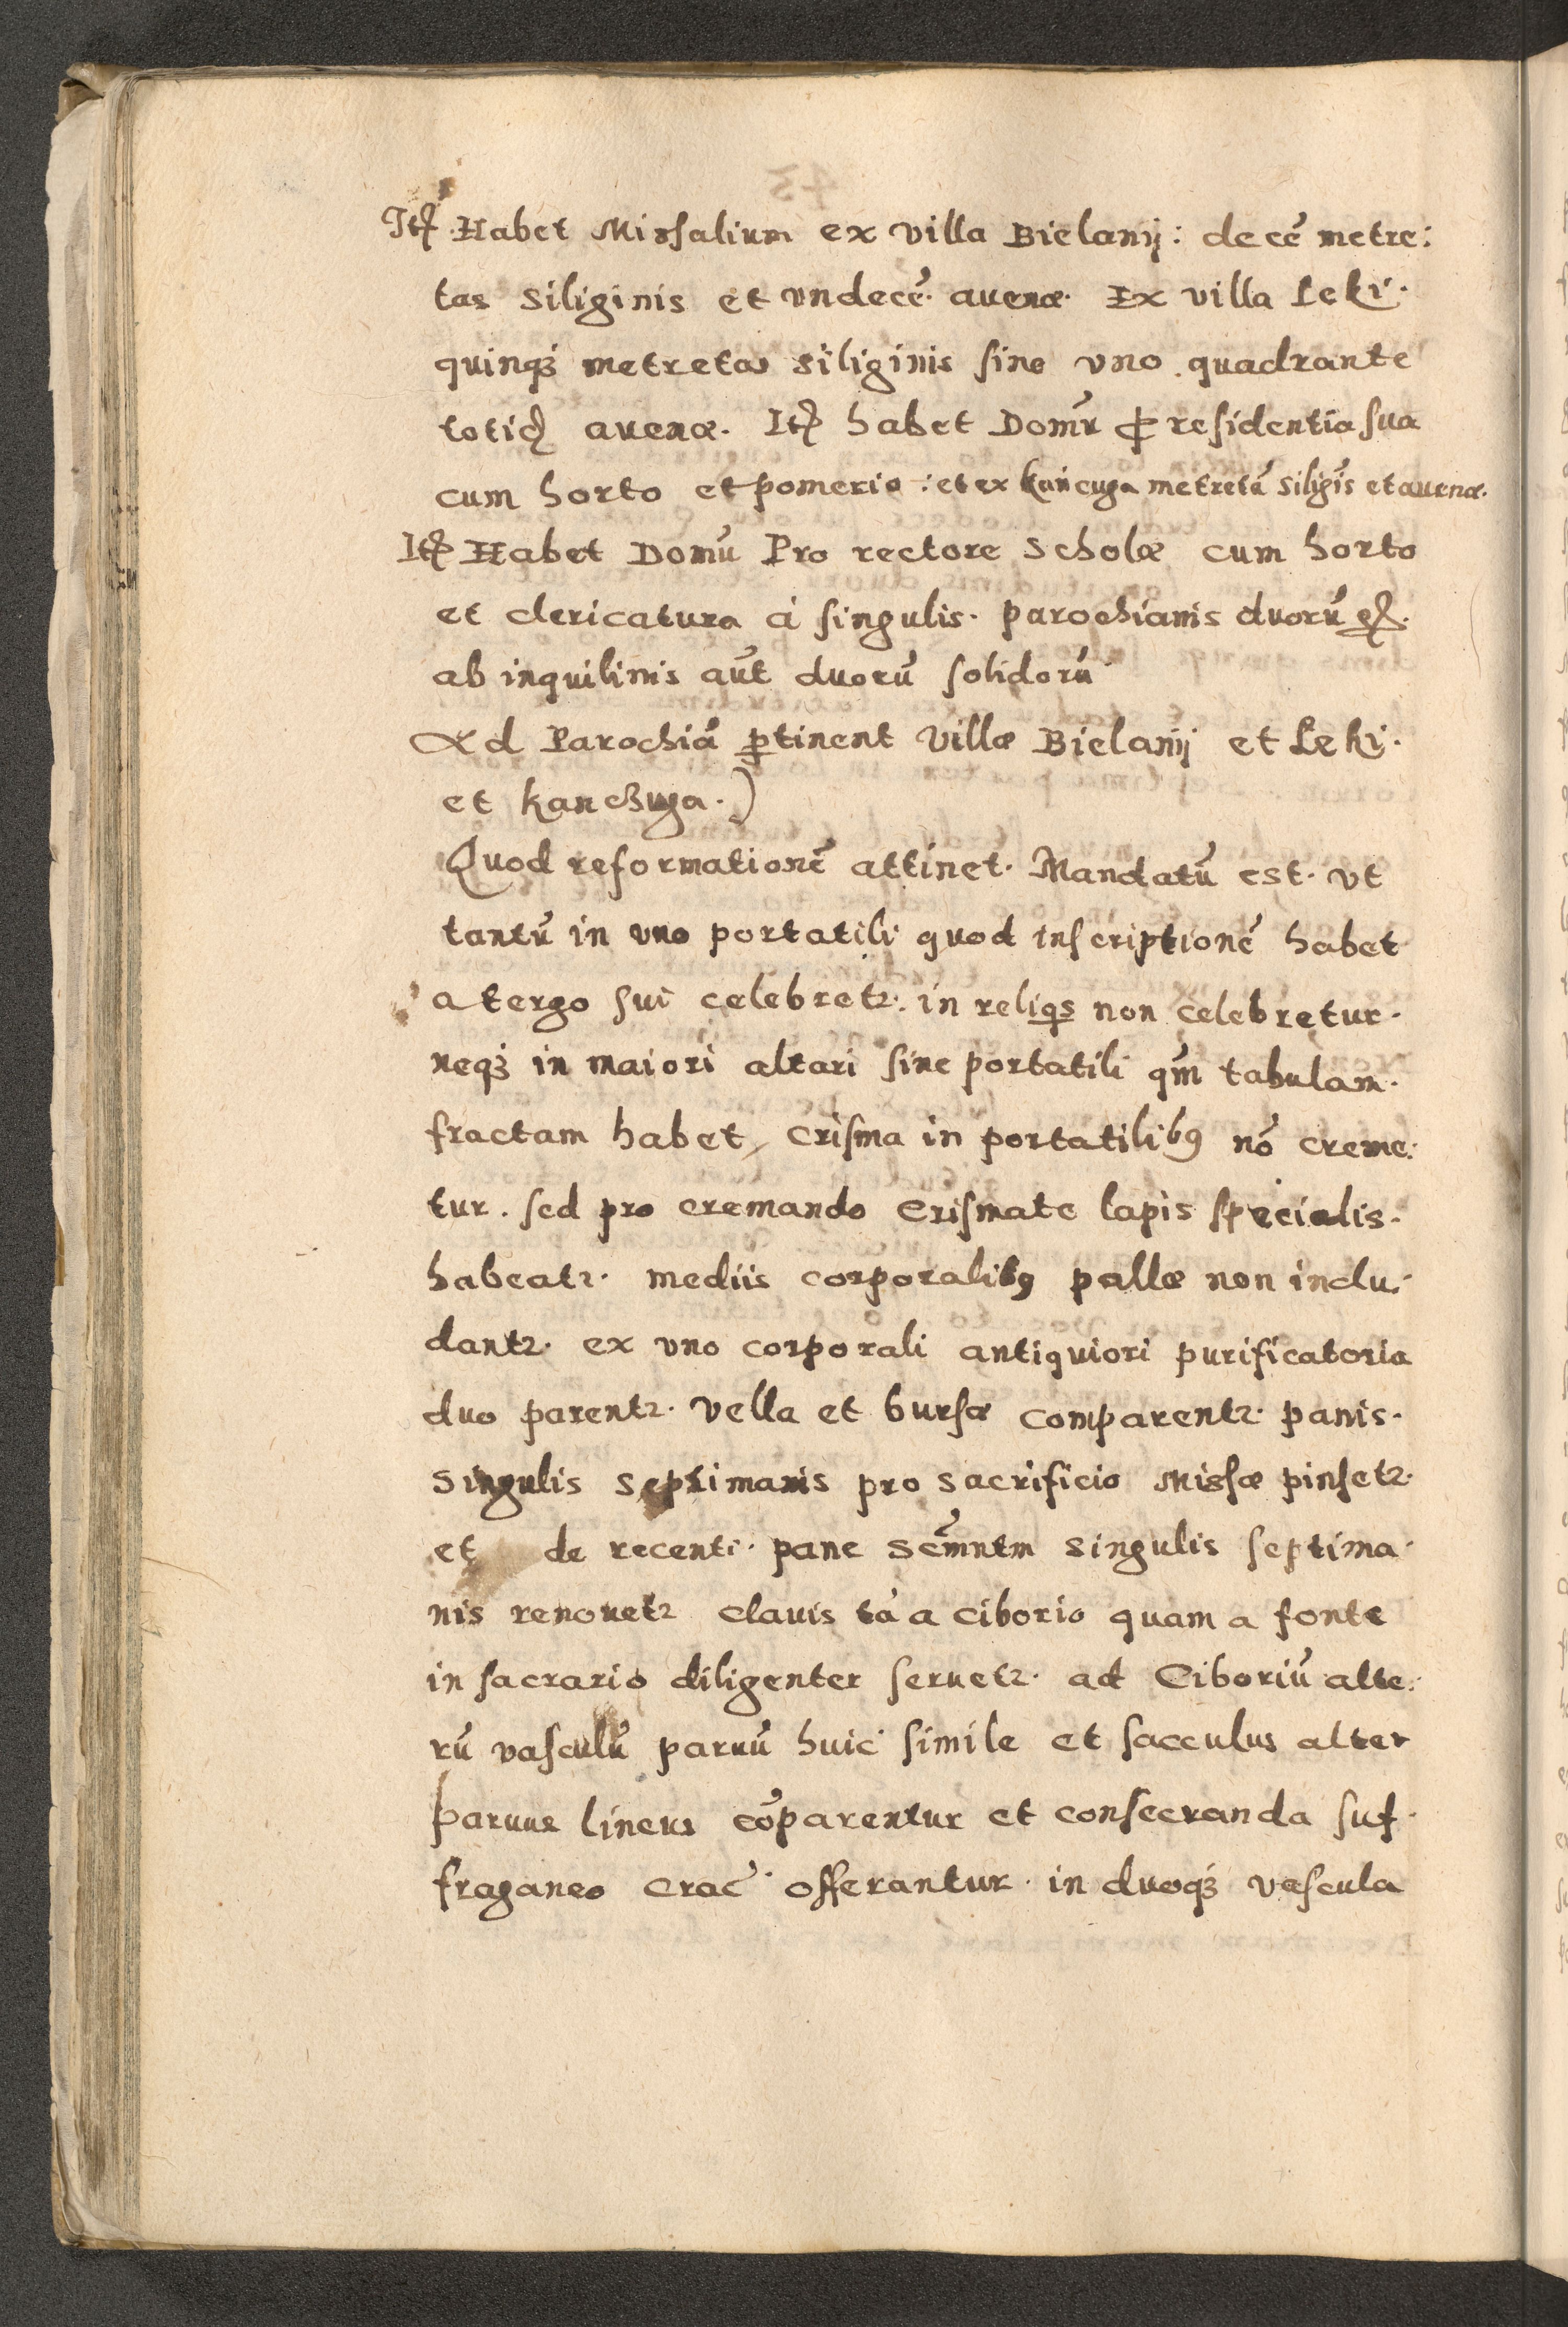 Itꝫ Habet Missalium ex villa Bielanÿ: decē metre:
tas siliginis et vndecē. avenæ. Ex villa Leki.
quinqꝫ metretas siliginis sine vno quadrante
totiꝺꝫ avenæ. Itꝫ habet Domū ꝓ residentia sua
cum horto et pomerio : et ex Kańcuga metretā siligīs et auenæ.
Itꝫ Habet Domū Pro rectore Scholæ cum horto
et clericatura à singulis. parochianis duorū
ab inquilinis aūt duorū solidorū
Ad Parochiā ꝑtinent villæ Bielanÿ et Leki.
et Kanczuga.)
Quod reformationē attinet. Mandatū est. vt
tantū in vno portatili quod inscriptionē habet
a tergo sui celebretꝛ. in reliqs non celebretur.
neqꝫ in maiori altari sine portatili qm̄ tabulam.
fractam habet, crisma in portatilibꝰ nō creme:
tur. sed pro cremando crismate lapis specialis.
habeatꝛ. mediis corporalibꝰ pallæ non inclu:
dantꝛ. ex vno corporali antiquiori purificatoria
duo parentꝛ. vella et bursæ comparentꝛ. panis.
singulis septimanis pro sacrificio Missæ pinsetꝛ.
et de recenti. pane scm̄ntm singulis septima
nis renouetꝛ clauis tā a ciborio quam a fonte
in sacrario diligenter seruetꝛ. ad Ciboriū alte:
rū vasculū paruū huic simile et sacculus alter
paruus lineus cōparentur et consecranda suf
fraganeo Crac̄. offerantur. in duoqꝫ vascula